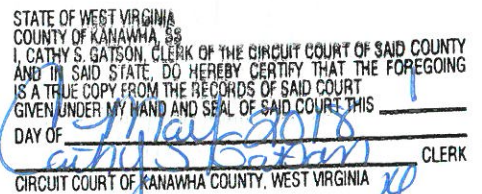 STATE OF WEST VIRGINIA
COUNTY OF KANAWHA, SS
I, CATHY S. GATSON, CLERK OF THE CIRCUIT COURT OF SAID COUNTY
AND IN SAID STATE, DO HEREBY CERTIFY THAT THE FOREGOING
IS A TRUE COPY FROM THE RECORDS OF SAID COURT
GIVEN UNDER MY HAND AND SEAL OF SAID COURT THIS 1
DAY OF May 2018
Cathy S Gatson CLERK
CIRCUIT COURT OF KANAWHA COUNTY, WEST VIRGINIA